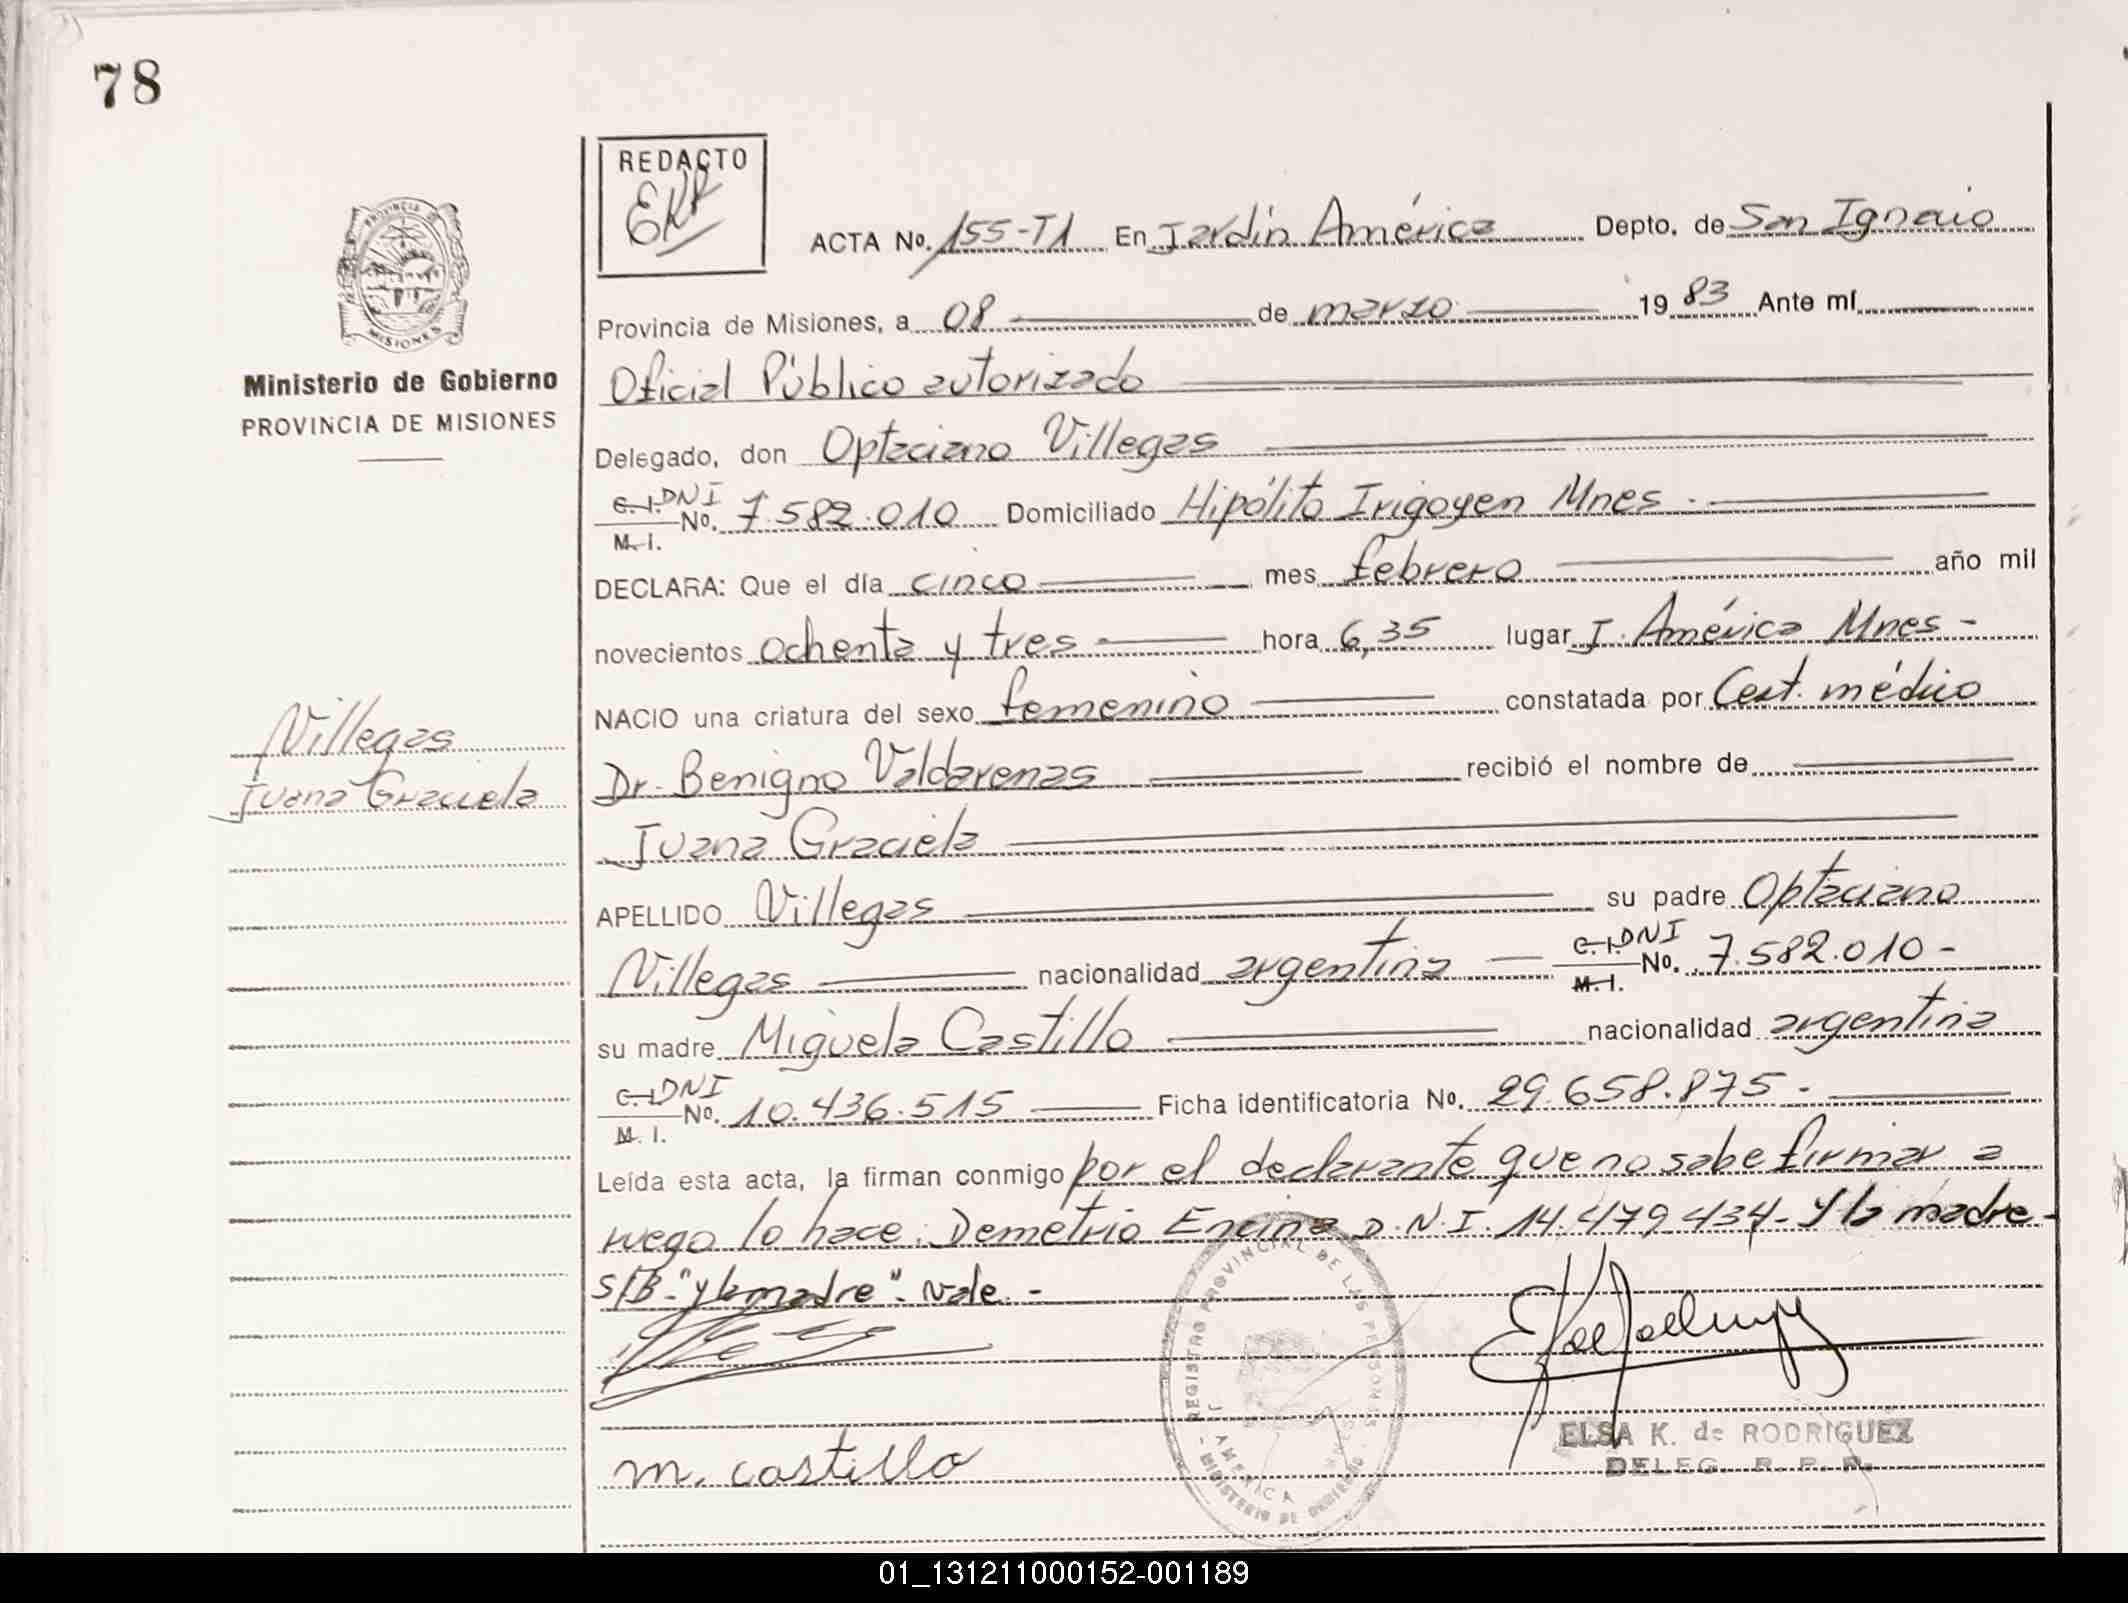 78
REDACTO
PROVINCIA DE
MISIONES
Ministerio de Gobierno
PROVINCIA DE MISIONES
ACTA No. 155-T1 En Jardín América Depto. de San Ignacio
Provincia de Misiones, a 08 de marzo 1983 Ante mí
Oficial Público autorizado
Delegado, don Optaciano Villegas
C.I. DNI
M.I. No. 7.582.010 Domiciliado Hipólito Irigoyen Mnes.
DECLARA: Que el día cinco mes febrero año mil
novecientos ochenta y tres hora 6,35 lugar J. América Mnes -
NACIO una criatura del sexo femenino constatada por Cert. médico
Dr. Benigno Valdarenas recibió el nombre de
Juana Graciela
APELLIDO Villegas su padre Optaciano
Villegas nacionalidad argentina C.I. DNI M.I. No. 7.582.010 -
su madre Miguela Castillo nacionalidad argentina
C.I. DNI
M.I. No. 10.436.515 Ficha identificatoria No. 29.658.875.-
Leída esta acta, la firman conmigo por el declarante que no sabe firmar a
ruego lo hace: Demetrio Encina D.N.I. 14.479.434- y la madre-
S/B-"y la madre". Vale.-
Villegas
Juana Graciela
m. castillo
REGISTRO PROVINCIAL DE LAS PERSONAS
J. AMERICA
MINISTERIO DE GOBIERNO
ELSA K. de RODRIGUEZ
DELEG. R. P. P.
01_131211000152-001189